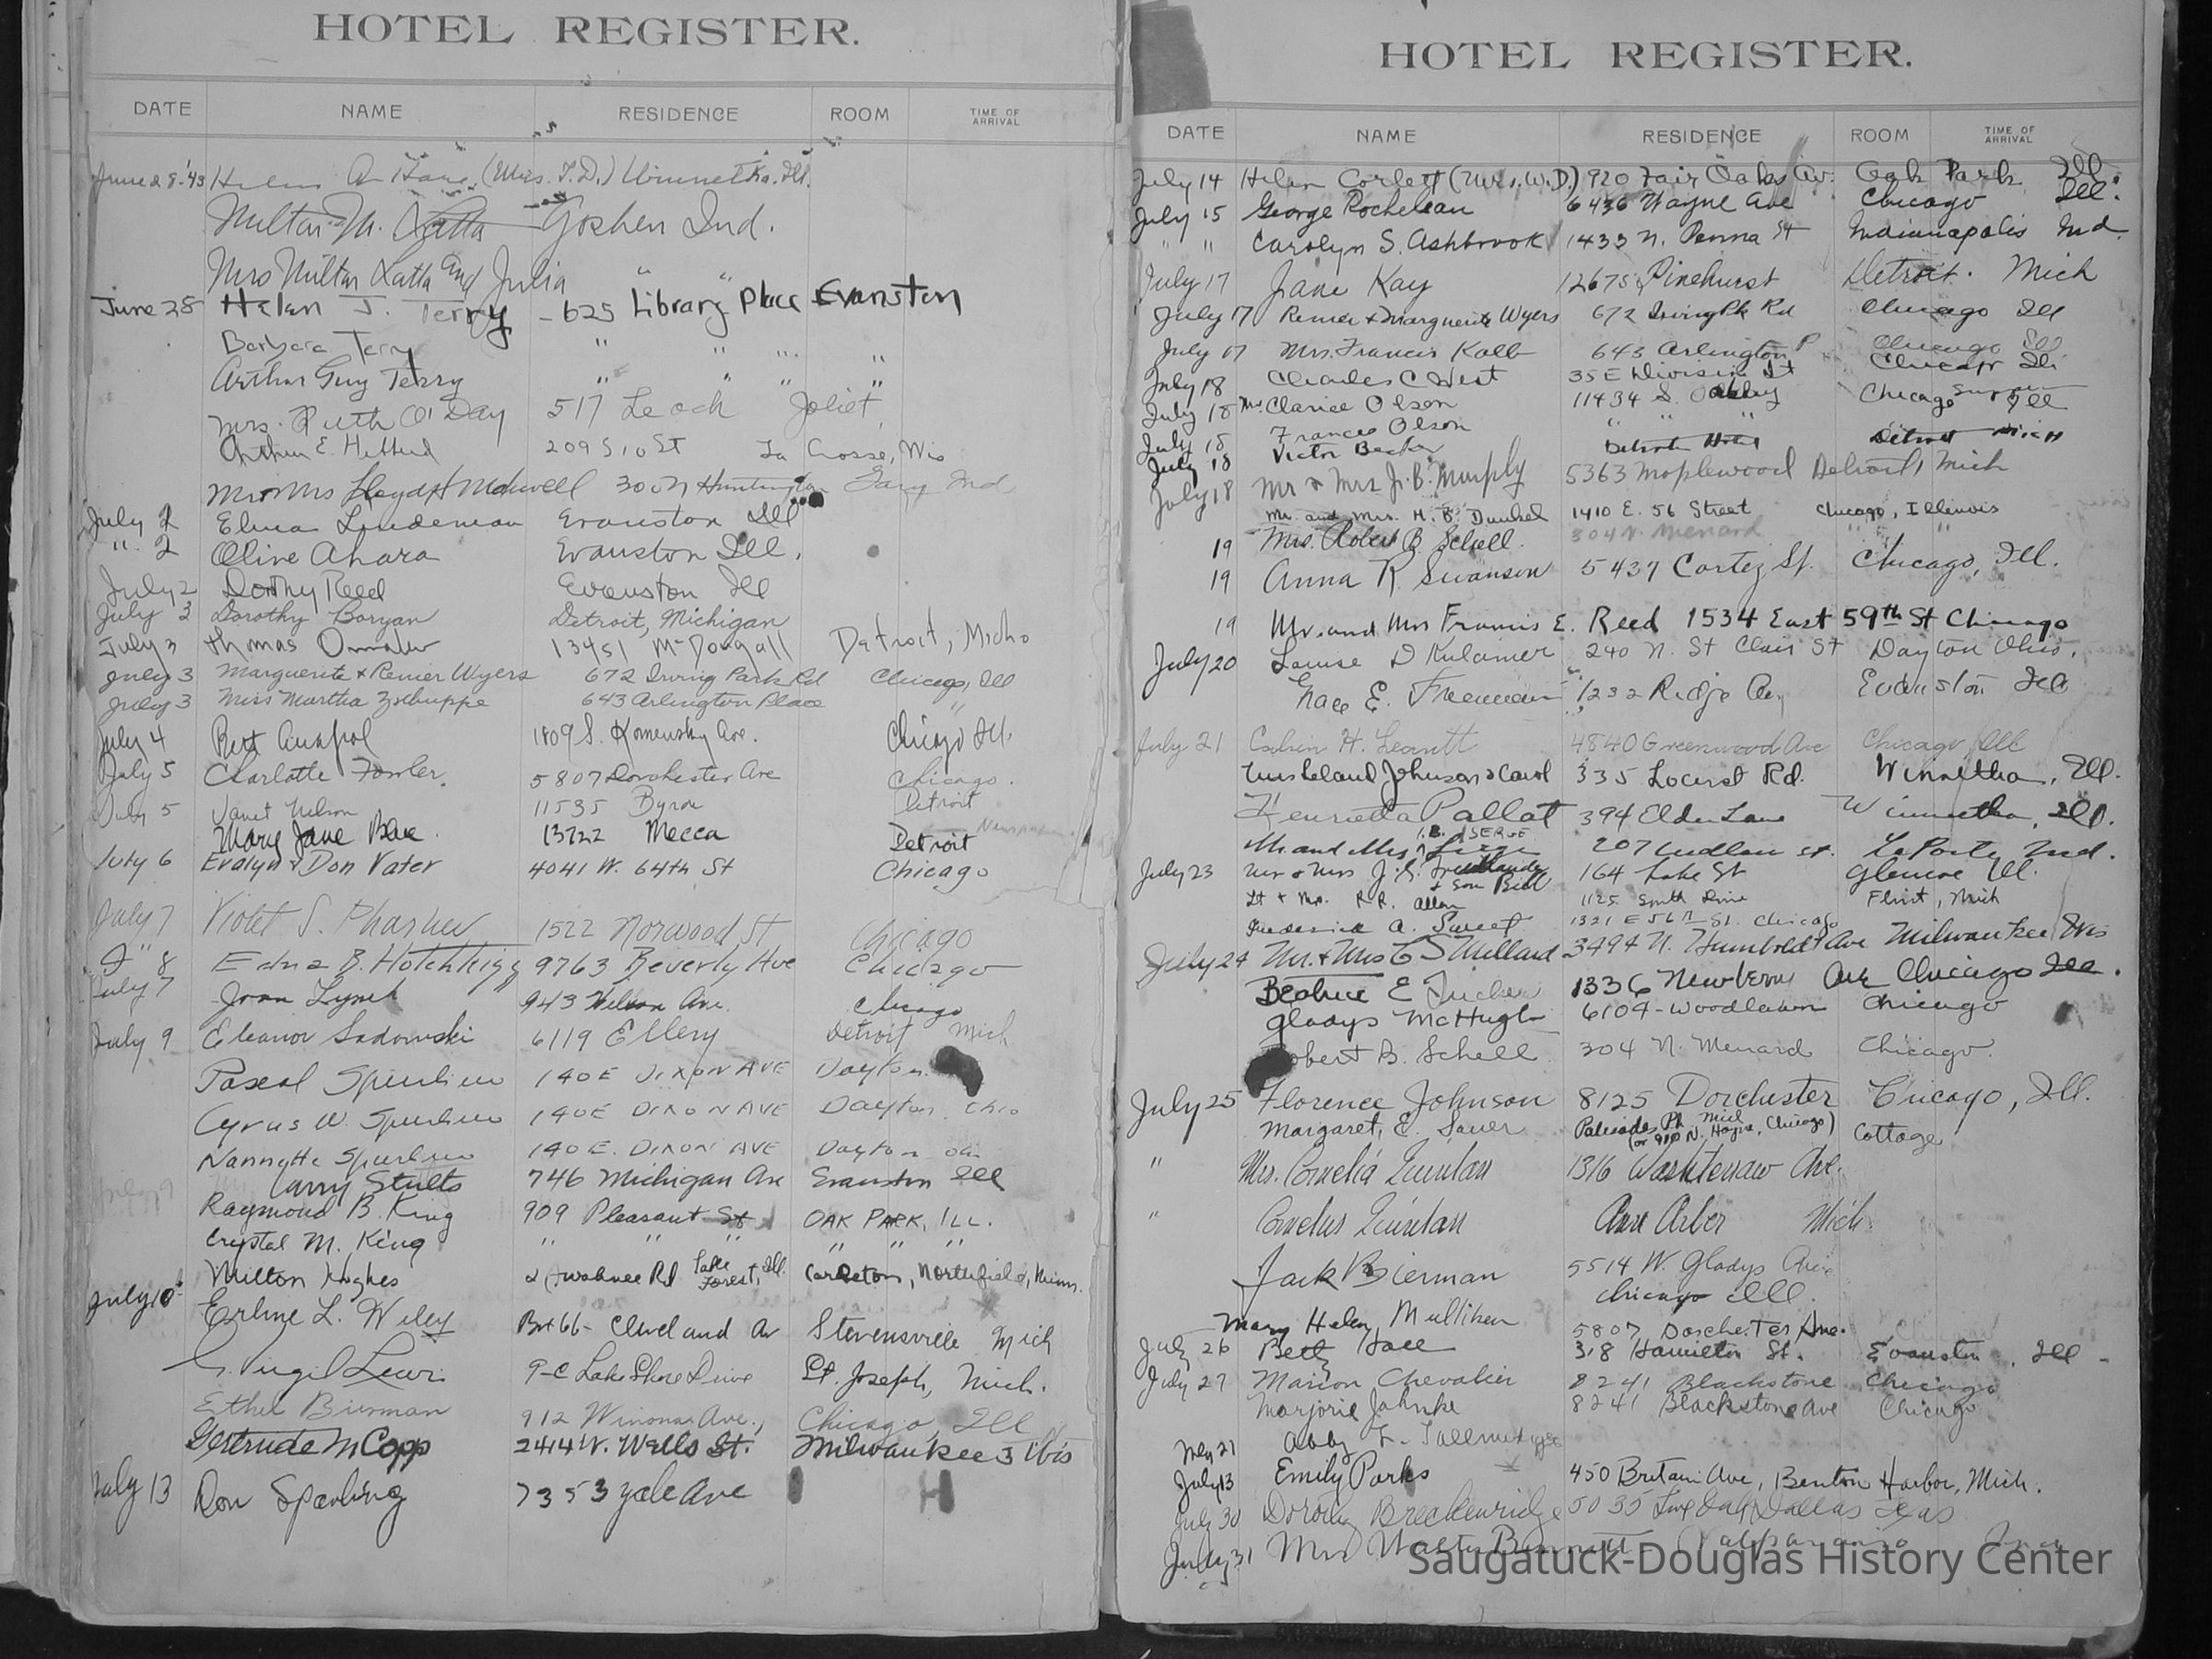 HOTEL REGISTER.
DATE NAME RESIDENCE ROOM TIME OF ARRIVAL
June 28 '43 Helen (Mrs. T.D.) Winnetka. Ill.
Milton M. Latta Goshen Ind.
Mrs Milton Latta and Julia " "
June 28 Helen J. Terry - 625 Library Place Evanston
Barbara Terry " " " "
Arthur Guy Terry " " " "
Mrs. Ruth O'Day 517 Leach Joliet
Arthur E. Hebberd 209 S 10 St La Crosse, Wis
Mr & Mrs Lloyd 300 N Huntington Gary Ind
July 2 Elma Lindeman Evanston Ill
" 2 Olive Ahara Evanston Ill.
July 2 Dorothy Reed Evanston Ill
July 3 Dorothy Boryan Detroit, Michigan
July 3 Thomas 13451 McDougall Detroit, Mich
July 3 Marguerite & Renier Wyers 672 Irving Park Rd Chicago, Ill
July 3 Miss Martha 643 Arlington Place "
July 4 Bert 1809 S. Komensky Ave. Chicago Ill.
July 5 Charlotte Fowler. 5807 Dorchester Ave Chicago.
July 5 Janet Nelson 11535 Byron Detroit
Mary Jane Blue. 13722 Mecca Detroit
July 6 Evalyn & Don Vater 4041 W. 64th St Chicago
July 7 Violet S. 1522 Norwood St Chicago
" 8 Edna B. Hotchkiss 9763 Beverly Ave Chicago
July 7 Joan Lynch 943 Wilson Ave. Chicago
July 9 Eleanor Sadowski 6119 Ellery Detroit Mich
Pascal Spurlin 140 E DIXON AVE Dayton
Cyrus W. 140 E DIXON AVE Dayton Ohio
Nannette 140 E. DIXON AVE Dayton
July 9 Larry Stults 746 Michigan Ave Evanston Ill
Raymond B. King 909 Pleasant St OAK PARK, ILL.
Crystal M. King " " " " " "
Milton Hughes Rd Lake Forest, Ill. Carleton, Northfield, Minn.
July 10 Erline L. Wiley Box 66 - Cleveland Av Stevensville Mich
G. Virgil Lewis 9-C Lake Shore Drive St. Joseph, Mich.
Ethel Bierman 912 Winona Ave., Chicago, Ill
Gertrude M Copp 2414 W. Wells St. Milwaukee 3 Wis
July 13 Don Sparling 7353 Yale Ave
HOTEL REGISTER.
DATE NAME RESIDENCE ROOM TIME OF ARRIVAL
July 14 Helen Corlett (Mrs. W.D.) 920 Fair Oaks Av. Oak Park Ill.
July 15 George Rocheleau 6436 Wayne Ave Chicago Ill.
" " Carolyn S. Ashbrook 1433 N. Penna St Indianapolis Ind.
July 17 Jane Kay 12675 Pinehurst Detroit. Mich
July 17 Renier & Marguerite Wyers 672 Irving Pk Rd Chicago Ill
July 17 Mrs. Francis Kalb 643 Arlington P Chicago Ill
July 18 Charles C West 35 E Division St Chicago Ill
July 18 Clarice Olson 11434 S. Chicago Ill
July 18 Frances Olson " "
July 18 Victor Becker Detroit Detroit Mich
July 18 Mr & Mrs J.B. Murphy 5363 Maplewood Detroit, Mich
Mr. and Mrs. H. B. Dunkel 1410 E. 56 Street Chicago, Illinois
19 Mrs. Robert B. Schell. 304 N. Menard " "
19 Anna R. Swanson 5437 Cortez St. Chicago, Ill.
19 Mr. and Mrs Francis E. Reed 1534 East 59th St Chicago
July 20 Louise D Kulamer 240 N. St Clair St Dayton Ohio.
Grace E. Freeman 1232 Ridge Av Evanston Ill
July 21 H. Leavitt 4840 Greenwood Ave Chicago, Ill
Mrs Leland Johnson & Carol 335 Locust Rd. Winnetka, Ill.
Henrietta Pallat 394 Elder Lane Winnetka, Ill.
Mr and Mrs I.B. Serge SERGE 207 Ludlow st. LaPorte Ind.
July 23 Mr & Mrs J. S. & Son Bill 164 Lake St Glencoe Ill.
Lt & Mrs. R.R. Allen 1125 South Drive Flint, Mich
Frederick A. Sweet 1321 E 56th St. Chicago
July 24 Mr. & Mrs C S Millard 3494 N. Humboldt Ave Milwaukee Wis
Beatrice E Tucker 1336 Newberry Ave Chicago Ill.
Gladys McHugh 6109 - Woodlawn Chicago
Robert B. Schell 304 N. Menard Chicago
July 25 Florence Johnson 8125 Dorchester Chicago, Ill.
Margaret E. Sauer Palisades Pk Mich (or 910 N. Hoyne, Chicago) Cottage
" Mrs. Cornelia Quinlan 1316 Washtenaw Ave.
" Quinlan Ann Arbor Mich
Jack Bierman 5514 W. Gladys Ave
Chicago Ill.
Mary Helen Milliken 5807 Dorchester Ave.
July 26 Betty Hall 318 Hamilton St. Evanston, Ill -
July 27 Marion Chevalier 8241 Blackstone Chicago
Marjorie Jahnke 8241 Blackstone Ave Chicago
July 27 Abby L. Tallmadge
July 13 Emily Parks 450 Britain Ave, Benton Harbor, Mich.
July 30 Dorothy Breckenridge 5035 Live Oak Dallas Texas
July 31 Mrs Walter Bennett - Valparaiso Ind
Saugatuck-Douglas History Center